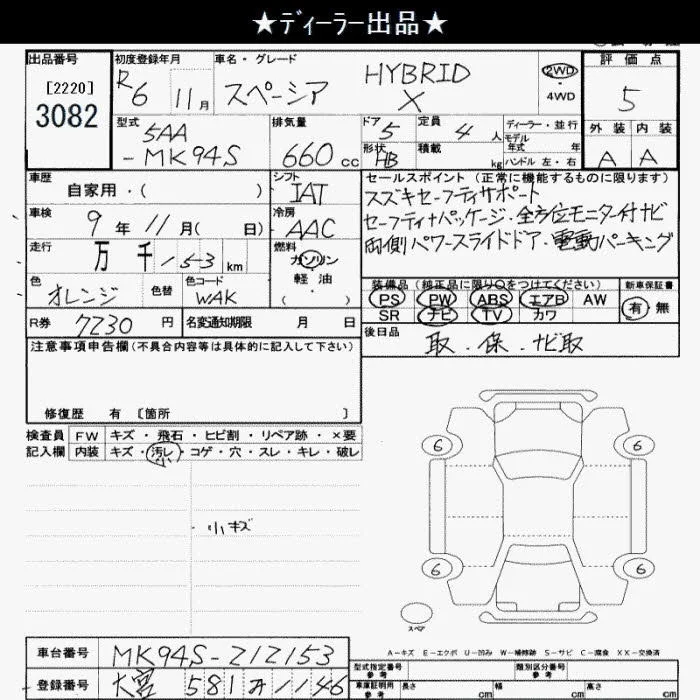 ★ディーラー出品★
出品番号
[2220]
3082
初度登録年月
R6 11月
車名・グレード
スペーシア HYBRID X
2WD
・
4WD
評価点
5
外装 内装
A A
型式
5AA
-MK94S
排気量
660cc
ドア 5
形状 HB
定員 4人
積載 kg
ディーラー・並行
モデル年式 年
ハンドル 左・右
車歴
自家用・( )
シフト
IAT
車検
9年11月( 日)
冷房
AAC
走行
万 千 153 km
燃料
ガソリン
軽油
( )
色
オレンジ
色替
色コード
WAK
R券 7230円
名変通知期限 月 日
セールスポイント (正常に機能するものに限ります)
スズキセーフティサポート
セーフティ+パッケージ・全方位モニター付ナビ
両側パワースライドドア・電動パーキング
装備品(純正品に限り○をつけてください)
PS PW ABS エアB AW
SR ナビ TV カワ
新車保証書
有・無
後日品
取.保.ナビ取
注意事項申告欄(不具合内容等は具体的に記入して下さい)
修復歴 有 〔箇所 〕
検査員記入欄
FW キズ・飛石・ヒビ割・リペア跡・×要
内装 キズ・汚レ・コゲ・穴・スレ・キレ・破レ
小
・小キズ
6 6
6 6
スペア
A-キズ E-エクボ U-凹み W-補修跡 S-サビ C-腐食 XX-交換済
車台番号 MK94S-212153
登録番号 大宮 581 み 1146
型式指定番号
参考
類別区分番号
参考
車庫証明用
参考
長さ cm 幅 cm 高さ cm